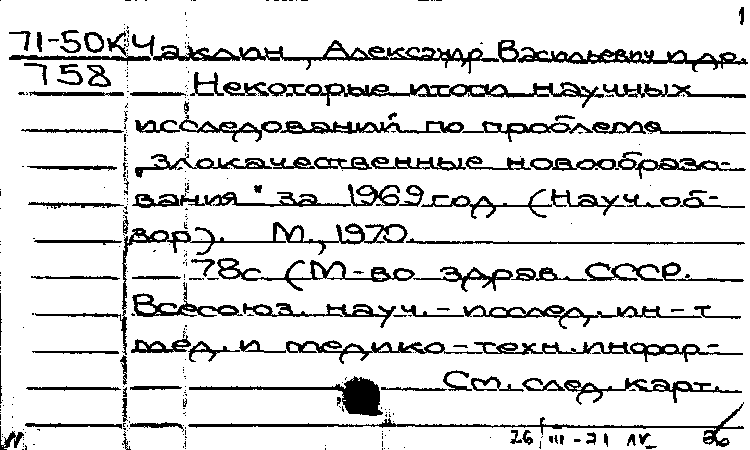 1
71-50К Чаклин, Александр Васильевич и др.
758 Некоторые итоги научных
исследований по проблеме
"Злокачественные новообразо-
вания" за 1969 год. (Науч. об-
зор). М., 1970.
78с. (М-во здрав. СССР.
Всесоюз. науч.-исслед. ин-т
мед. и медико-техн. информ-
См. след. карт.
26 III-71